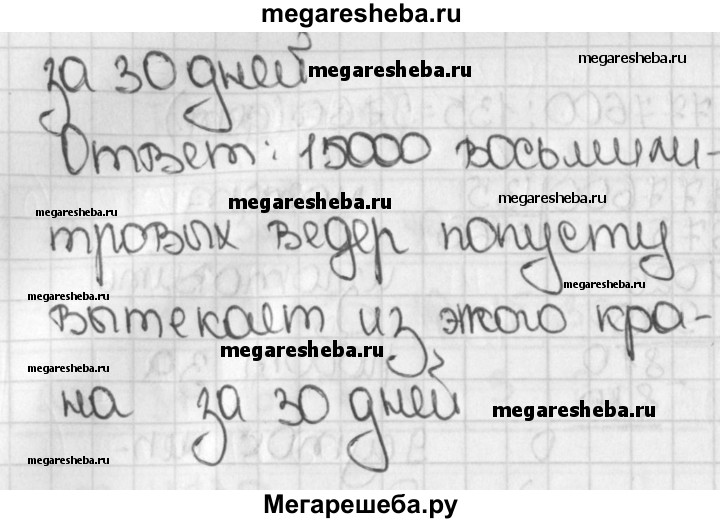 megaresheba.ru
за 30 дней
megaresheba.ru
megaresheba.ru
Ответ: 15000 восьмили-
megaresheba.ru
megaresheba.ru
megaresheba.ru
тровых ведер попусту
megaresheba.ru
megaresheba.ru
вытекает из этого кра-
megaresheba.ru
megaresheba.ru
на за 30 дней
megaresheba.ru
megaresheba.ru
Мегарешеба.ру